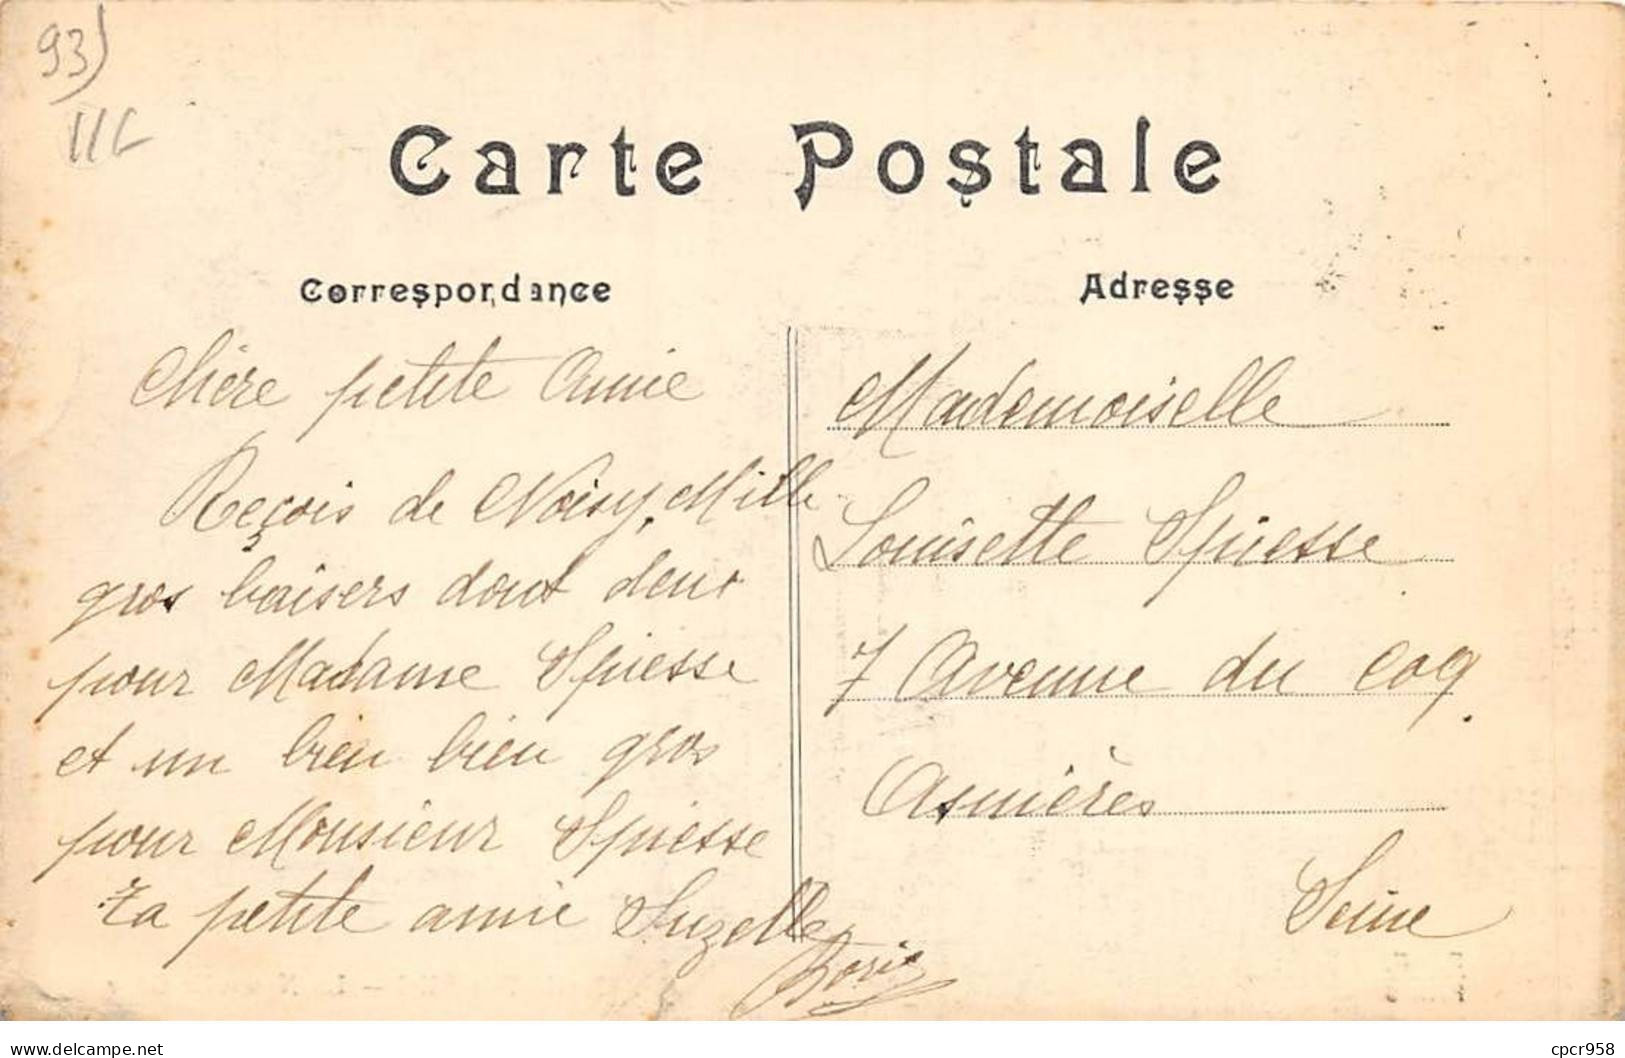 93)
Carte Postale
Correspondance
Chère petite Amie
Reçois de Noisy, Mille
gros baisers dont deux
pour Madame Spiesse
et un bien bien gros
pour Monsieur Spiesse
Ta petite amie Suzelle
Adresse
Mademoiselle
Louisette Spiesse
7 Avenue du Coq
Asnières
Seine
delcampe.net
cpcr958